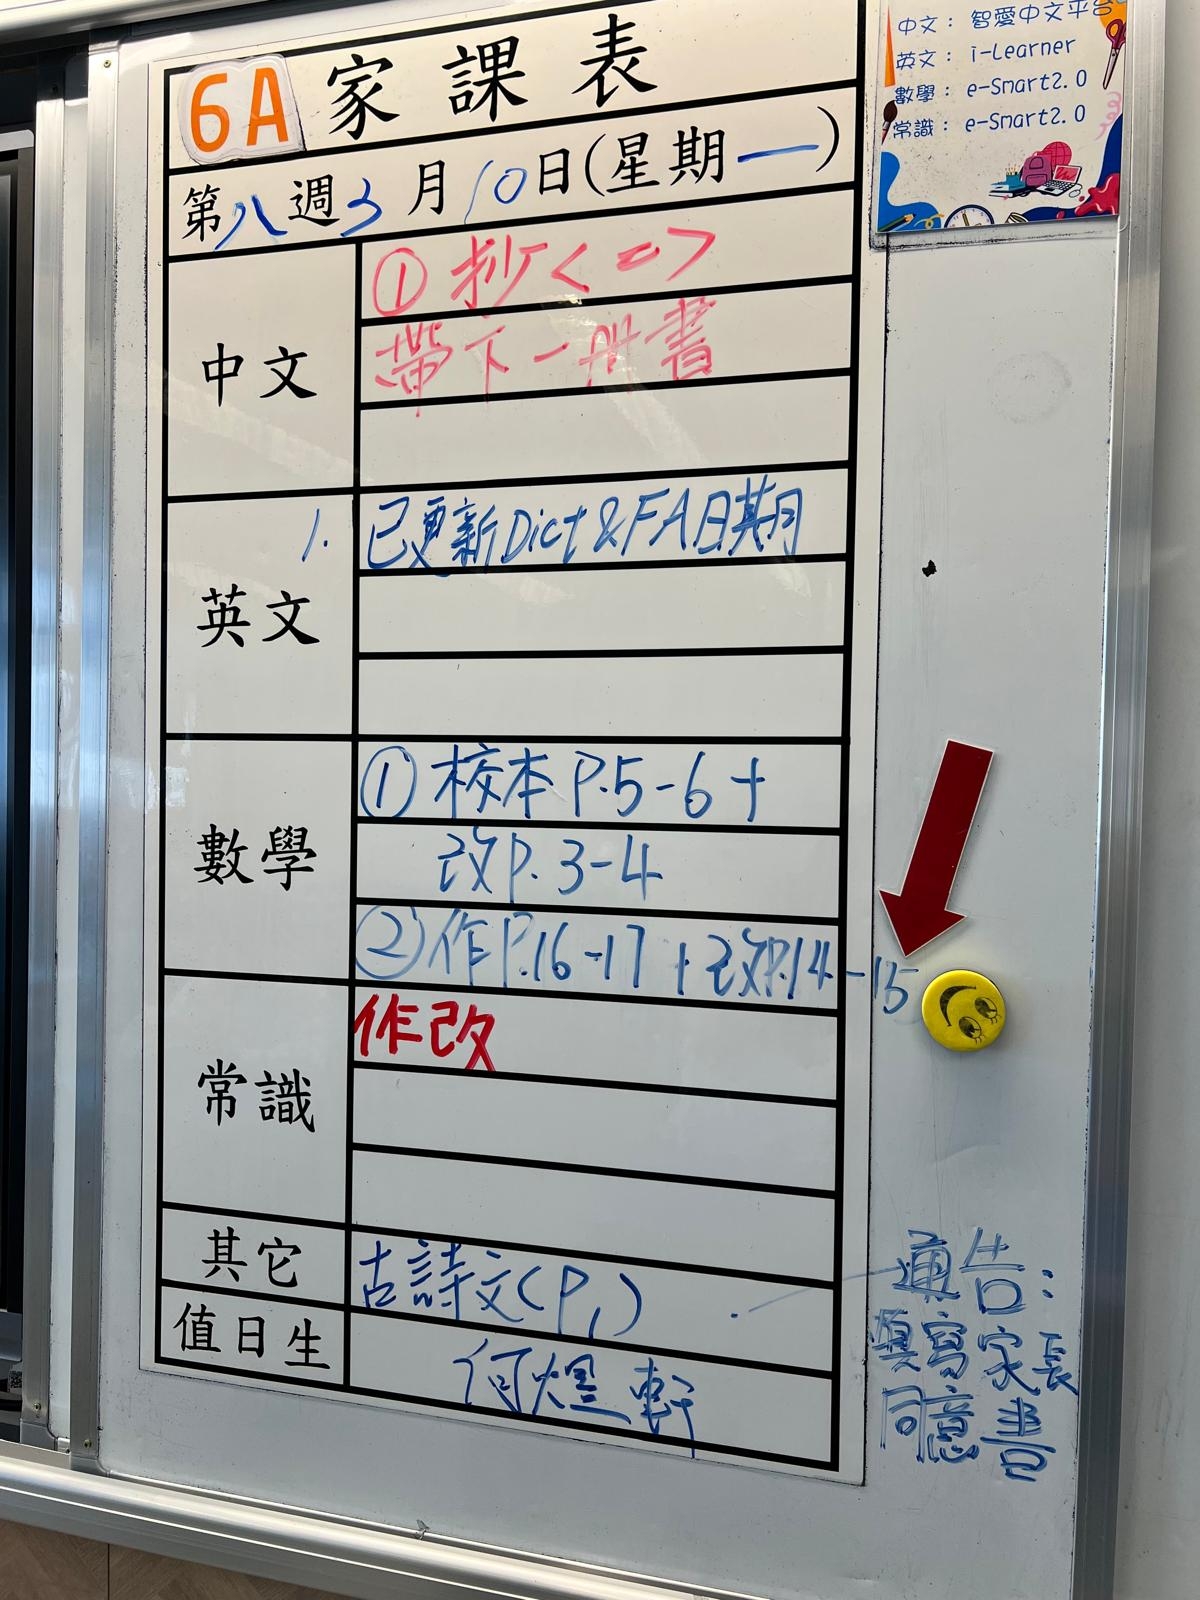 6A 家課表
第八週 3月10日(星期一)
中文
① 抄<二>
帶下一冊書
英文
1. 已更新Dict & FA日期
數學
① 校本 P.5-6 +
改P. 3-4
② 作P.16-17 + 改P.14-15
常識
作改
其它
古詩文(P1)
值日生
何煜軒
中文： 智愛中文平台
英文： i-Learner
數學： e-Smart2.0
常識： e-Smart2.0
通告：
填寫家長
同意書